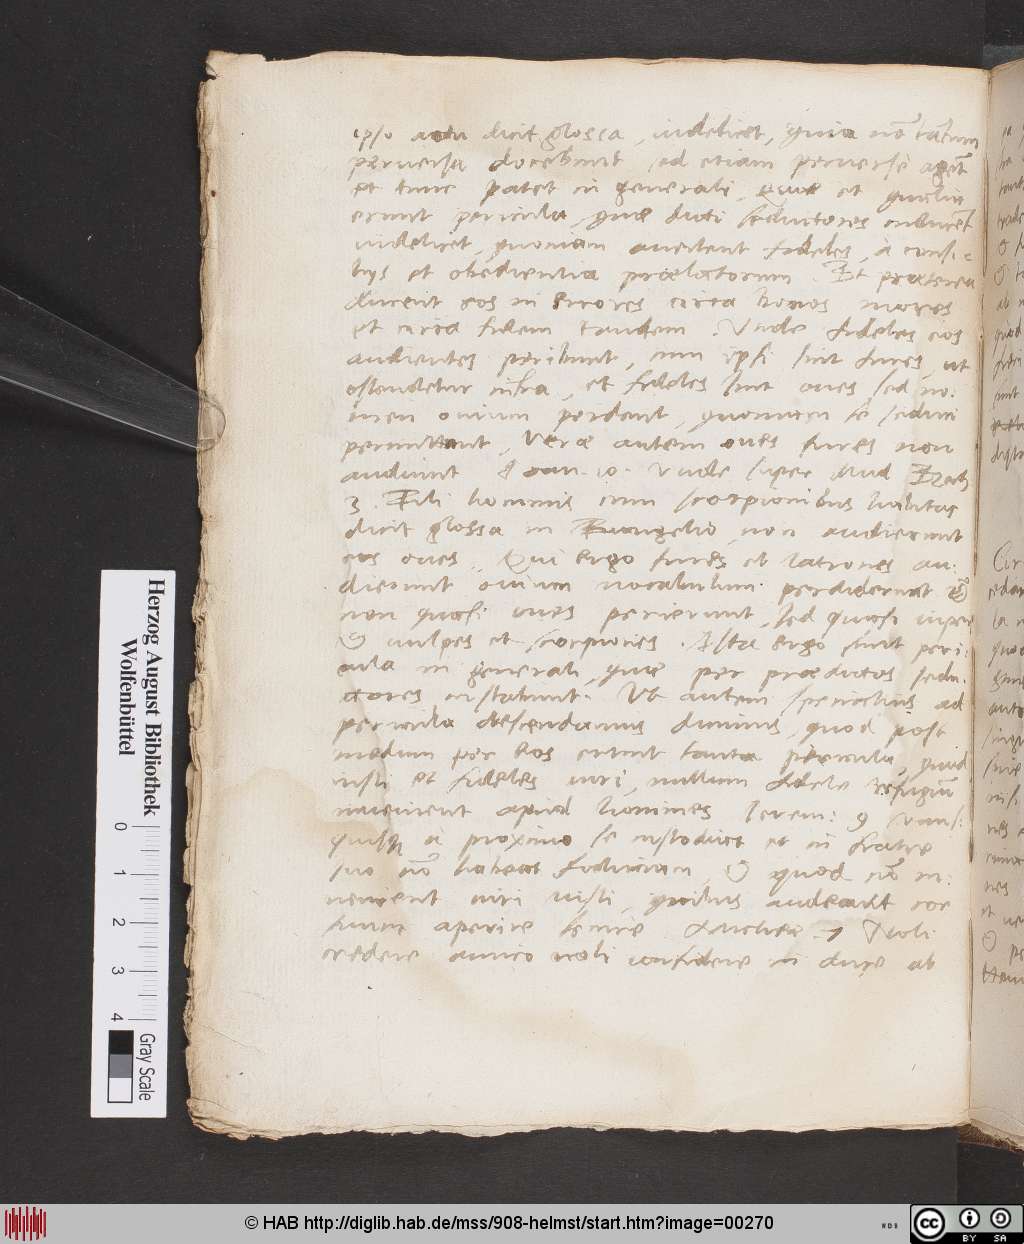 ipso actu dicit glossa, videlicet, quia nō tātum
perversa docebunt sed etiam perverse agēt
et tunc patet in generali, quae et qualia
erunt pericula, quae dicti seductores inducēt
videlicet, quoniam avertent fideles, à consi=
lijs et obedientia praelatorum. Et praeterea
ducent eos in errores circa bonos mores
et circa fidem tandem. Unde fideles eos
audientes peribunt, cum ipsi sint fures, ut
ostendetur infra, et fideles sint oves sed no:
men ovium perdent, quoniam se seduci
permittent, Verae autem oves fures non
audiunt Joan. 10. Unde super illud Ezech
3. Fili hominis cum scorpionibus habitas
dicit glossa in Evangelio, non audierunt
eos oves, Qui ergo fures et latrones au:
dierunt ovium vocabulum perdiderunt
non quasi oves perierunt, sed quasi viperae
vulpes et scorpiones. Ista ergo sunt peri:
cula in generali, quae per praedictos sedu:
ctores instabunt. Ut autem specialius ad
pericula descendamus dicimus, quod post
modum per eos erunt tanta pericula, quod
iusti et fideles viri, nullum fidele refugiū
invenient apud homines Ierem: 9
à proximo se custodiat et in fratre
suo nō habeat fiduciam, quod nō in:
venient viri iusti, quibus audeant cor
suum aperire 7 Noli
credere amico noli confidere in duce ab
Herzog August Bibliothek
Wolfenbüttel
0 1 2 3 4
Gray Scale
© HAB http://diglib.hab.de/mss/908-helmst/start.htm?image=00270
WDB
cc BY SA